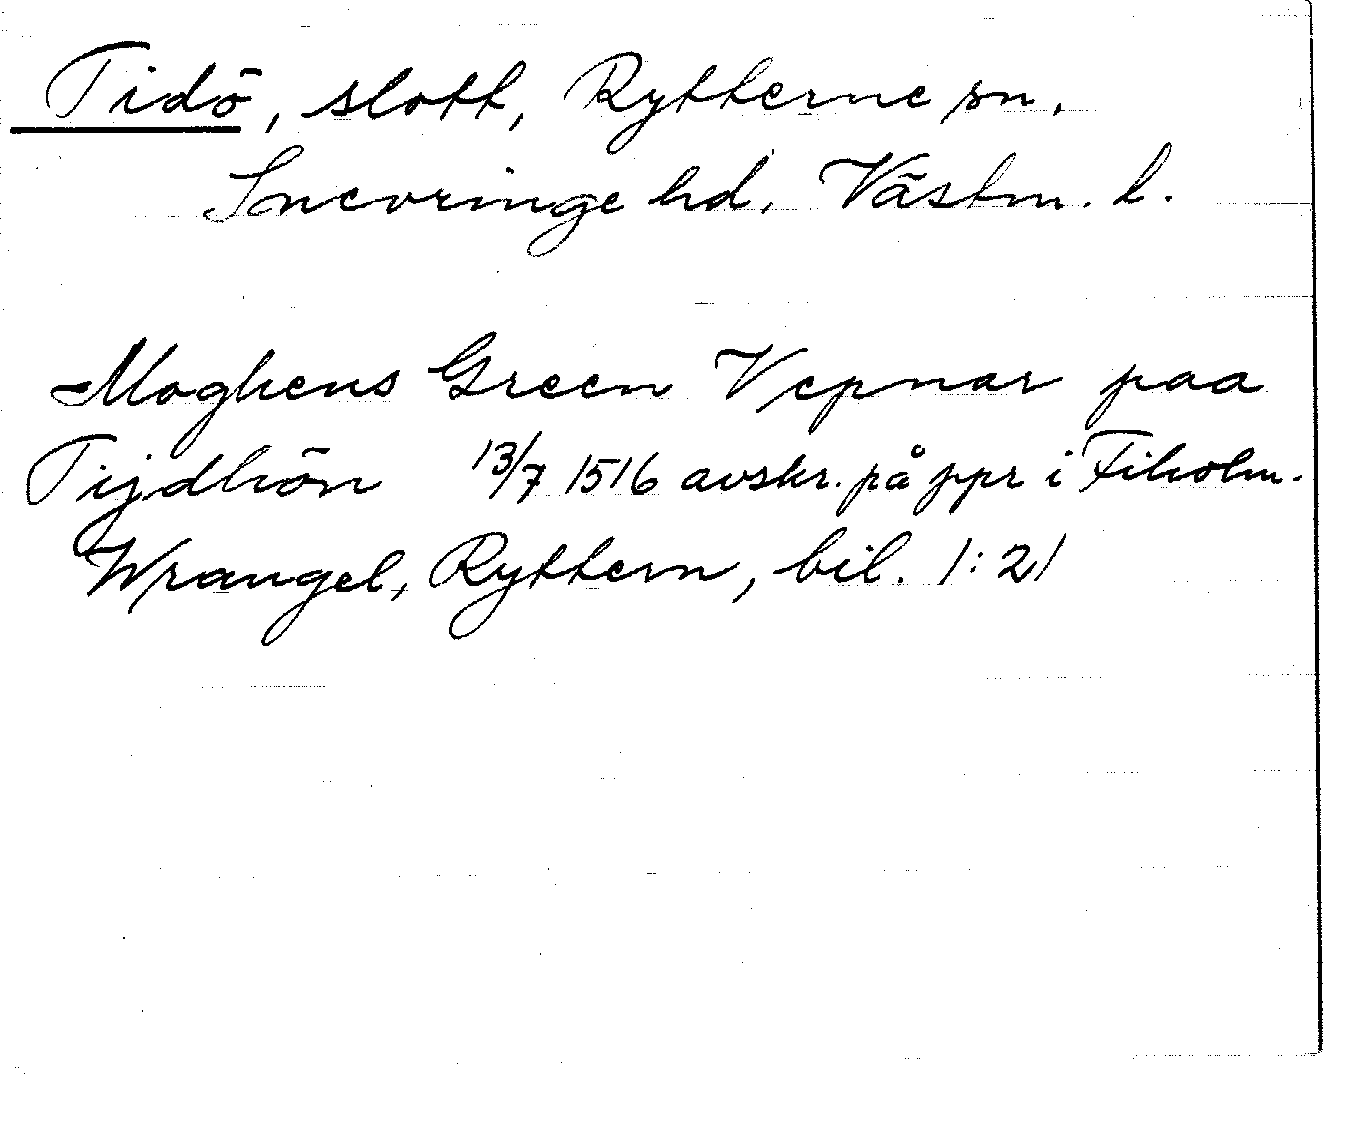 Tidö, slott, Rytterne sn,
Snevringe hd, Västm. l.
Moghens Green Vepnar paa
Tijdhön 13/7 1516 avskr. på ppr i Fiholm.
Wrangel, Ryttern, bil. 1:21